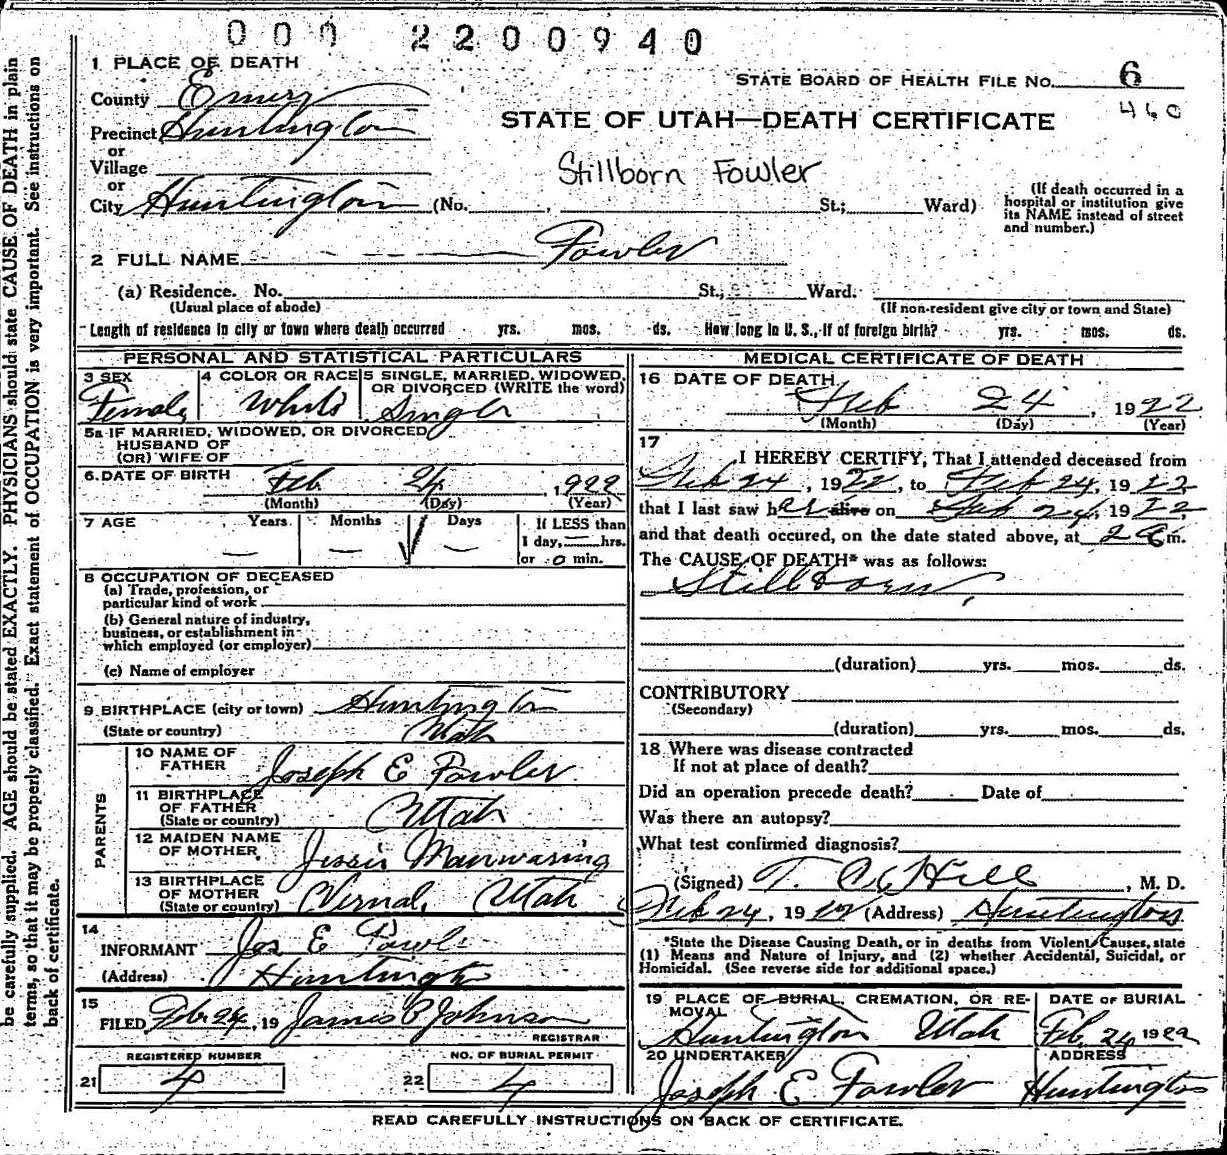 000 2200940
1 PLACE OF DEATH
STATE BOARD OF HEALTH FILE No. 6
County Emery
460
STATE OF UTAH—DEATH CERTIFICATE
Precinct Huntington
or
Village
Stillborn Fowler
or
City Huntington (No. , St.; Ward)
(If death occurred in a hospital or institution give its NAME instead of street and number.)
2 FULL NAME — — — Fowler
(a) Residence. No. St., Ward.
(Usual place of abode) (If non-resident give city or town and State)
Length of residence in city or town where death occurred yrs. mos. ds. How long in U. S., if of foreign birth? yrs. mos. ds.
PERSONAL AND STATISTICAL PARTICULARS
3 SEX Female
4 COLOR OR RACE White
5 SINGLE, MARRIED, WIDOWED, OR DIVORCED (WRITE the word) Single
5a IF MARRIED, WIDOWED, OR DIVORCED
HUSBAND OF
(OR) WIFE OF
6. DATE OF BIRTH Feb 24, 1922
(Month) (Day) (Year)
7 AGE Years Months Days If LESS than
— — — 1 day, — hrs.
or 0 min.
8 OCCUPATION OF DECEASED
(a) Trade, profession, or
particular kind of work
(b) General nature of industry,
business, or establishment in
which employed (or employer)
(c) Name of employer
9 BIRTHPLACE (city or town) Huntington
(State or country) Utah
PARENTS
10 NAME OF FATHER Joseph E Fowler
11 BIRTHPLACE OF FATHER (State or country) Utah
12 MAIDEN NAME OF MOTHER Jessie Manwaring
13 BIRTHPLACE OF MOTHER (State or country) Vernal, Utah
14
INFORMANT Jos E Fowler
(Address) Huntington
15
FILED Feb 24, 19 James P Johnson
REGISTRAR
REGISTERED NUMBER NO. OF BURIAL PERMIT
21 4 22 4
MEDICAL CERTIFICATE OF DEATH
16 DATE OF DEATH
Feb 24, 1922
(Month) (Day) (Year)
17
I HEREBY CERTIFY, That I attended deceased from
Feb 24, 1922, to Feb 24, 1922
that I last saw her alive on Feb 24, 1922,
and that death occured, on the date stated above, at 2 a m.
The CAUSE OF DEATH* was as follows:
Stillborn,
(duration) yrs. mos. ds.
CONTRIBUTORY
(Secondary)
(duration) yrs. mos. ds.
18 Where was disease contracted
If not at place of death?
Did an operation precede death? Date of
Was there an autopsy?
What test confirmed diagnosis?
(Signed) T. C. Hill, M. D.
Feb 24, 1922 (Address) Huntington
*State the Disease Causing Death, or in deaths from Violent Causes, state
(1) Means and Nature of Injury, and (2) whether Accidental, Suicidal, or
Homicidal. (See reverse side for additional space.)
19 PLACE OF BURIAL, CREMATION, OR RE-
MOVAL
Huntington Utah
DATE OF BURIAL
Feb, 24 1922
20 UNDERTAKER
Joseph E Fowler
ADDRESS
Huntington
READ CAREFULLY INSTRUCTIONS ON BACK OF CERTIFICATE.
be carefully supplied. AGE should be stated EXACTLY. PHYSICIANS should state CAUSE OF DEATH in plain
terms, so that it may be properly classified. Exact statement of OCCUPATION is very important. See instructions on
back of certificate.